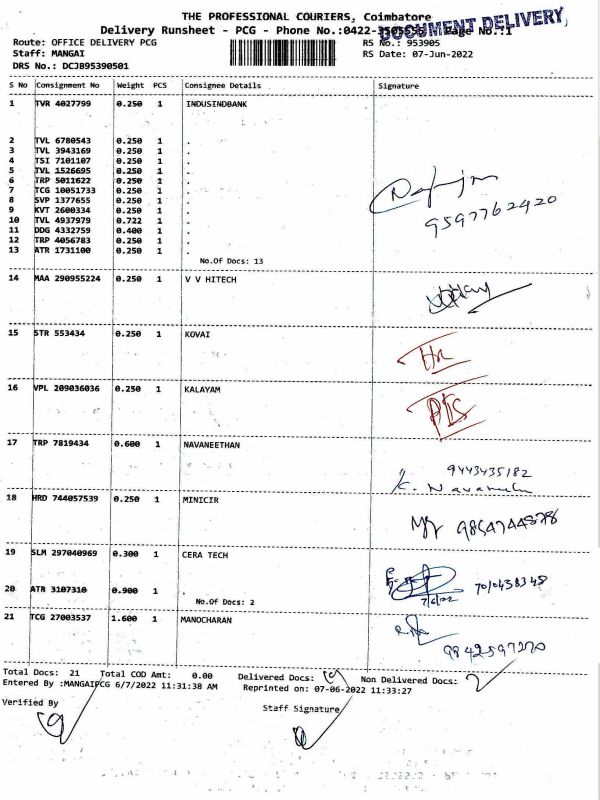 THE PROFESSIONAL COURIERS, Coimbatore
DOCUMENT DELIVERY
Delivery Runsheet - PCG - Phone No.:0422- Page No.:1
Route: OFFICE DELIVERY PCG RS No.: 953905
Staff: MANGAI RS Date: 07-Jun-2022
DRS No.: DCJB95390501
S No Consignment No Weight PCS Consignee Details Signature
1 TVR 4027799 0.250 1 INDUSINDBANK
2 TVL 6780543 0.250 1 .
3 TVL 3943169 0.250 1 .
4 TSI 7101107 0.250 1 .
5 TVL 1526695 0.250 1 .
6 TRP 5011622 0.250 1 .
7 TCG 10051733 0.250 1 .
8 SVP 1377655 0.250 1 .
9 KVT 2600334 0.250 1 .
10 TVL 4937979 0.722 1 .
11 DDG 4332759 0.400 1 .
12 TRP 4056783 0.250 1 .
13 ATR 1731100 0.250 1 .
9597762420
No.Of Docs: 13
14 MAA 290955224 0.250 1 V V HITECH
15 STR 553434 0.250 1 KOVAI
16 VPL 209036036 0.250 1 KALAYAM
17 TRP 7819434 0.600 1 NAVANEETHAN
9443435182
18 HRD 744057539 0.250 1 MINICIR
19 SLM 297040969 0.300 1 CERA TECH
20 ATR 3107310 0.900 1 .
7/6/22
No.Of Docs: 2
21 TCG 27003537 1.600 1 MANOCHARAN
Total Docs: 21 Total COD Amt: 0.00 Delivered Docs: 19 Non Delivered Docs: 2
Entered By :MANGAIPCG 6/7/2022 11:31:38 AM Reprinted on: 07-06-2022 11:33:27
Verified By Staff Signature